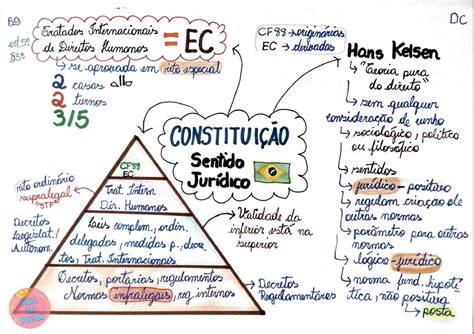 BQ
art. 5º
§3º
Tratados Internacionais
de Direitos Humanos = EC
↳ se aprovada em rito especial
2 casas
2 turnos
3/5
CF88 → originárias
EC → derivadas
DC
CONSTITUIÇÃO
Sentido
Jurídico
Hans Kelsen
↳ "Teoria pura
do direito"
↳ sem qualquer
consideração de cunho
↳ sociológico, político
ou filosófico
↳ sentidos
↳ jurídico-positivo
↳ regulam criação de
outras normas
↳ parâmetro para outras
normas
↳ lógico-jurídico
↳ norma fund. hipoté
tica, não positiva
↳ posta
CF88
EC
Trat. Intern
Dir. Humanos
Leis complem., ordin,
delegadas, medidas p., decre
tos, Trat. Internacionais
Decretos, portarias, regulamentos
Normas infralegais, reg. internos
rito ordinário
supralegal
"STF"
Decretos
Legislat./
Autônom.
Validade da
inferior está na
superior
Decretos
Regulamentares